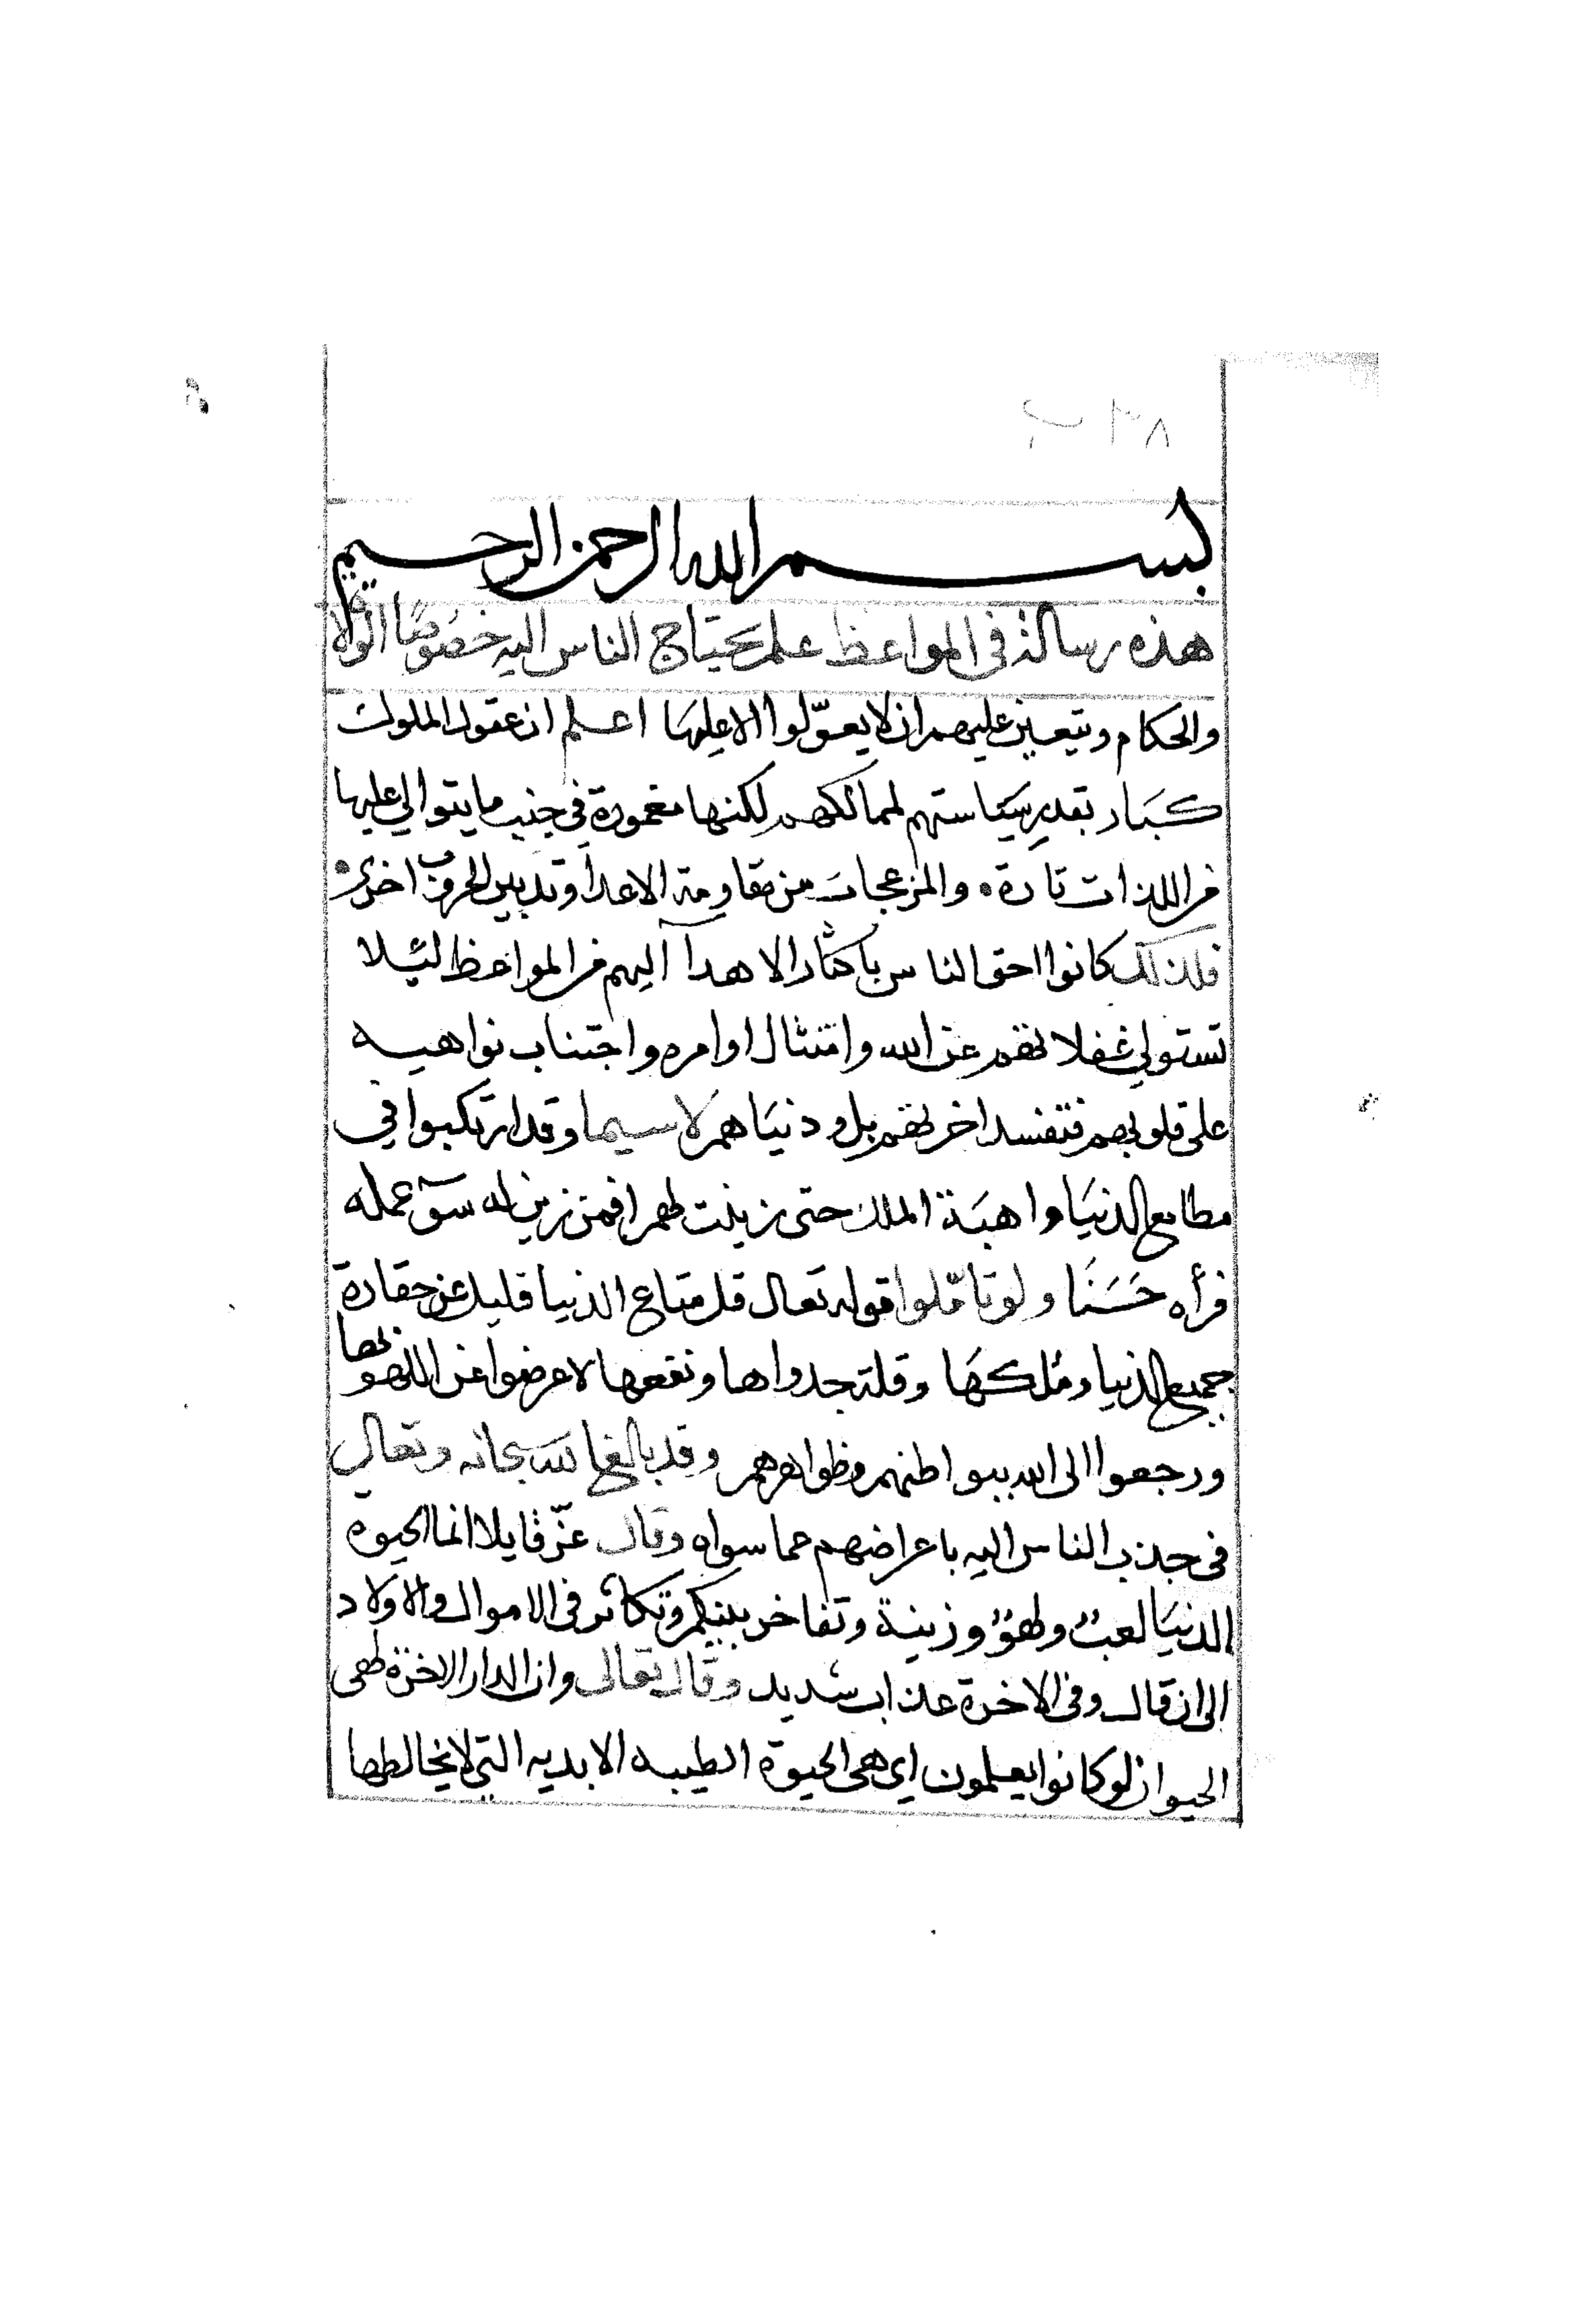 بسم الله الرحمن الرحيم
هذه رسالة في المواعظ علم يحتاج الناس اليه خصوصًا الولاة
والحكام ويتعين عليهم ان لا يعوّلوا الا عليها اعلم ان عقول الملوك
كبار بقدر سياستهم لممالكهم لكنها مغمورة في جنب ما يتوالي عليها
من اللذات تارة والمزعجات من مقاومة الاعدا وتدبير الحروب اخرى
فلذلك كانوا احق الناس باكثار الاهدآ اليهم من المواعظ لئلا
تستولي غفلاتهم عن الله وامتثال اوامره واجتناب نواهيه
على قلوبهم فتفسد اخرتهم بل ودنياهم لا سيما وقد ارتكبوا في
مطامع الدنيا واهبة الملك حتى زينت لهم افمن زين له سوٓ عمله
فرأه حَسَنًا ولو تامّلوا قوله تعال قل متاع الدنيا قليل عن حقارة
جميع الدنيا ومُلكهَا وقلة جدواها ونفعها لاعرضوا عن اللهو بها
ورجعوا الى الله ببواطنهم وظواهرهم وقد بالغ سبحانه وتعالي
في جذب الناس اليه باعراضهم عما سواه وقال عزّ قايلا انما الحيوه
الدنيا لعبٌ ولهوٌ وزينة وتفاخر بينكم وتكاثر في الاموال والاولاد
الى ان قال وفي الاخرة عذاب شديد وقال تعالى وان الدار الاخرة لهي
الحيوان لو كانوا يعلمون اي هي الحيوة الطيبه الابديه التي لا يخالطها